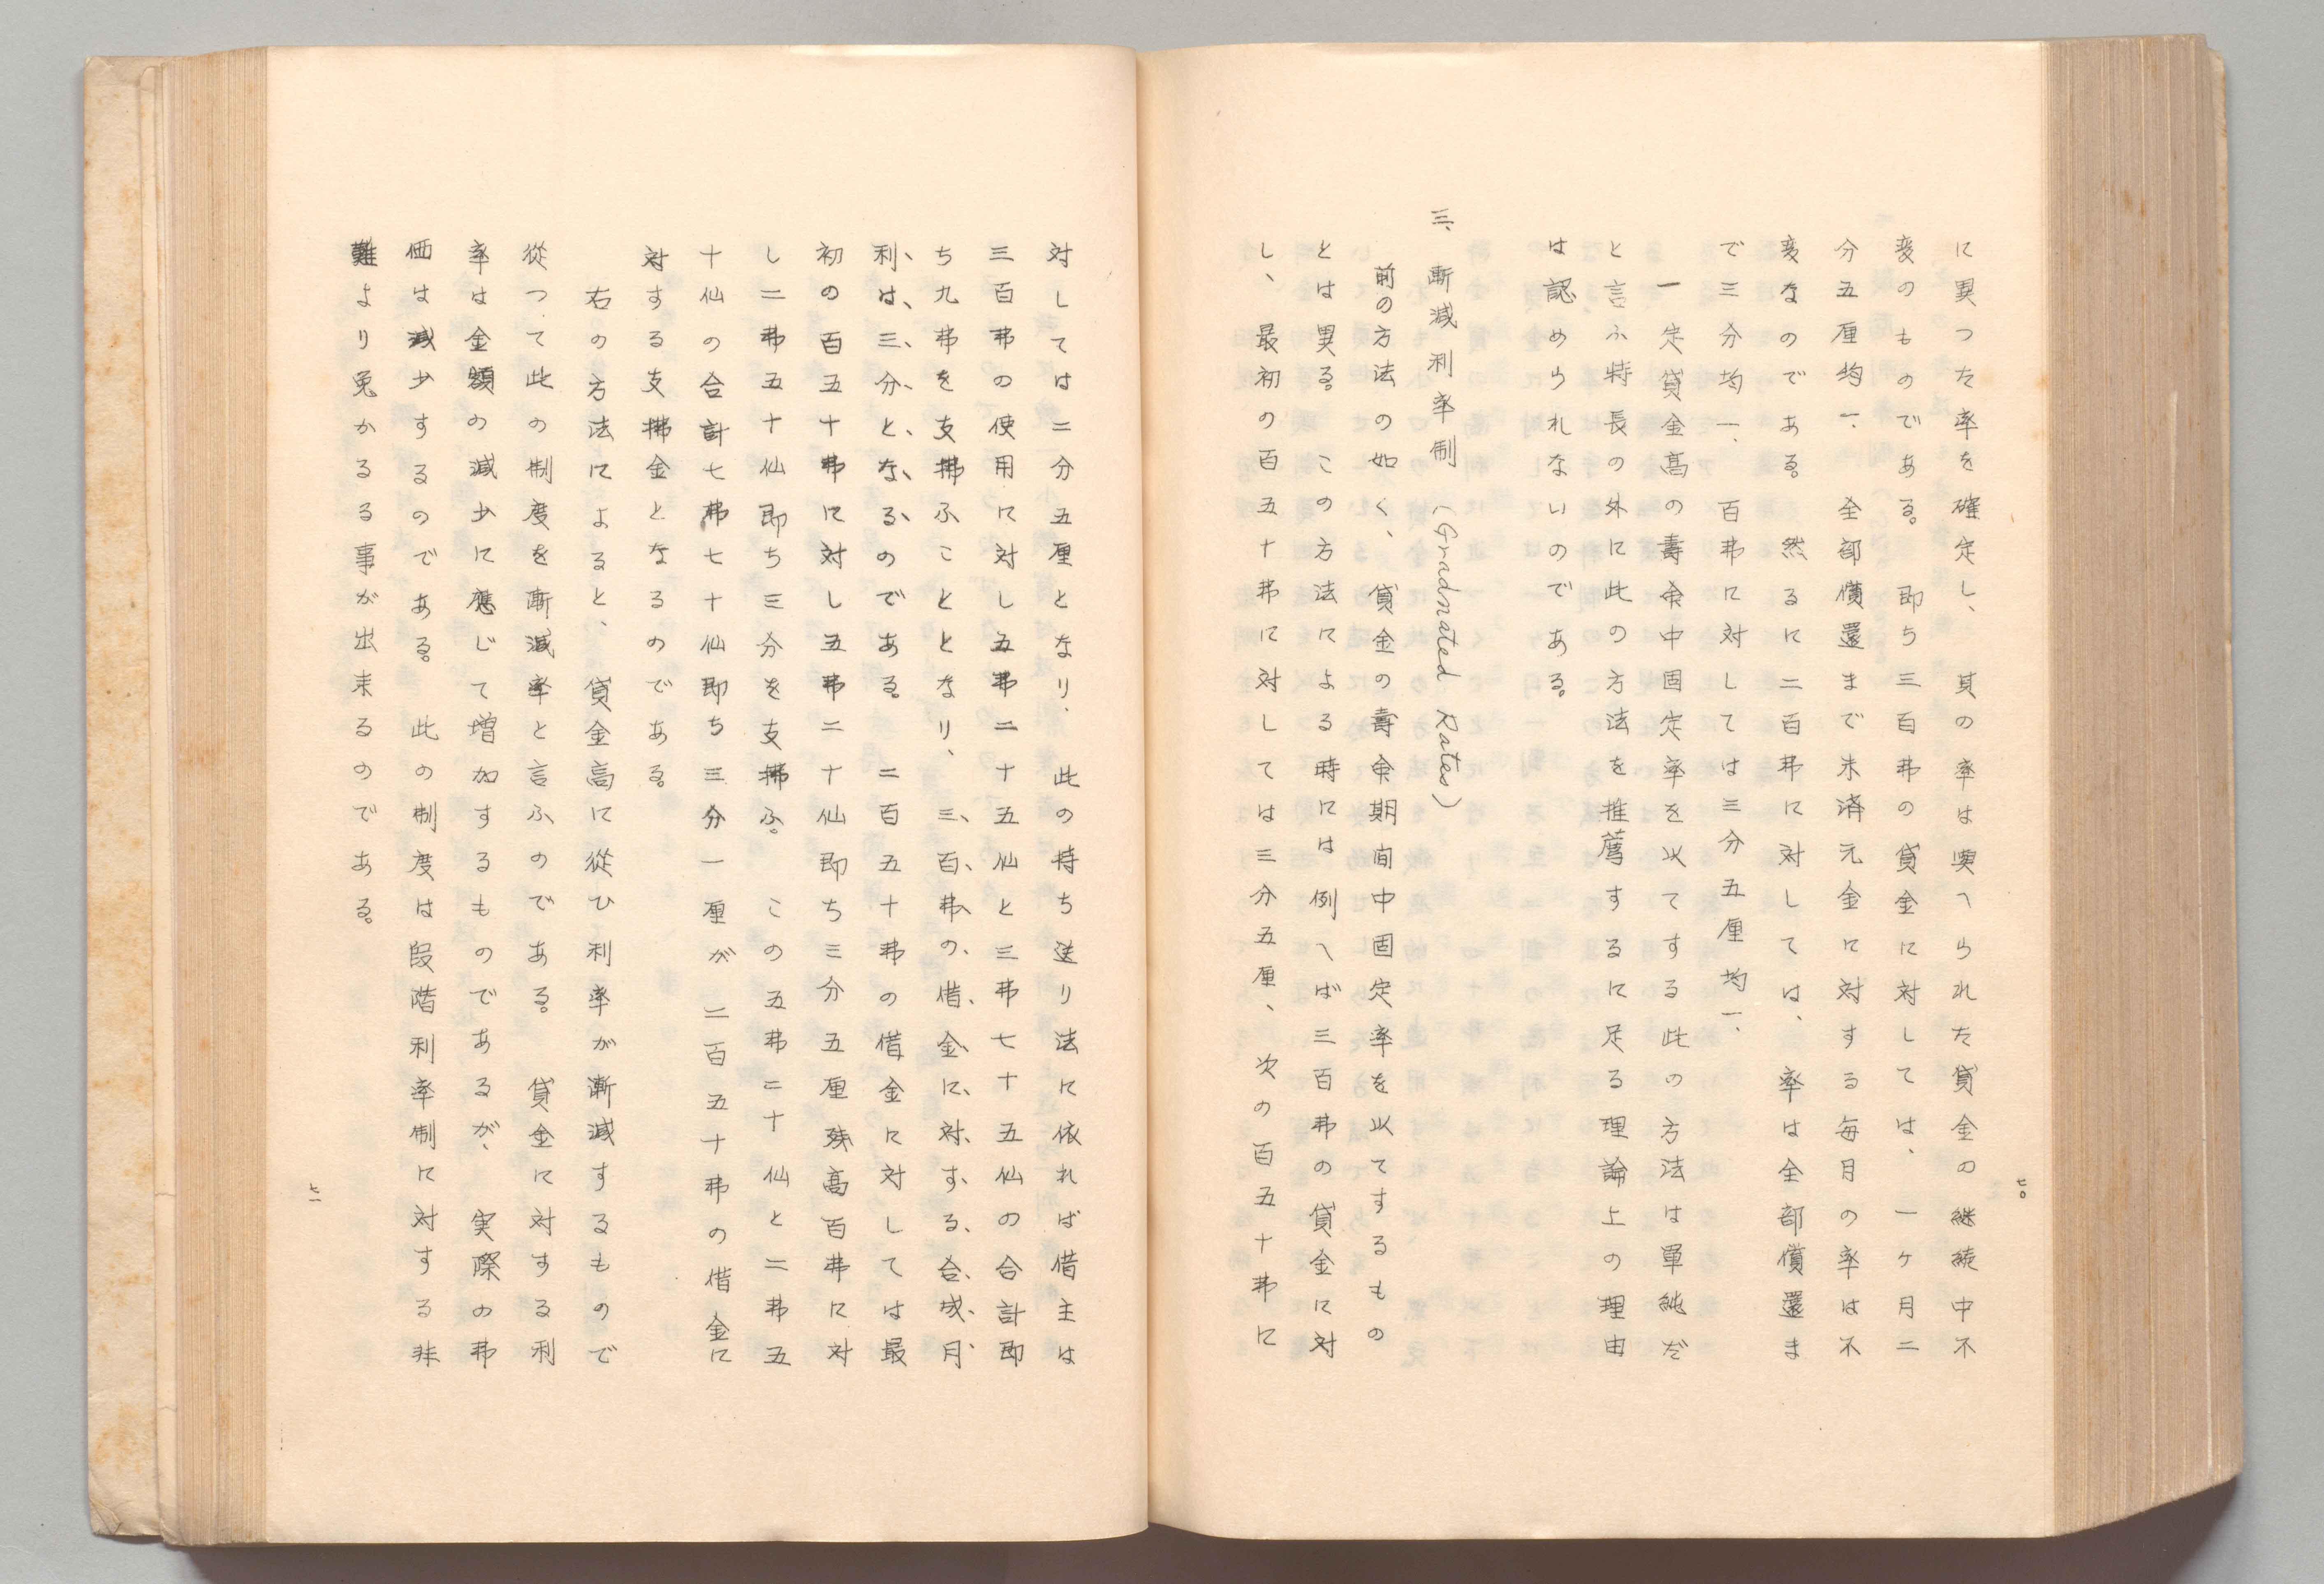 に異つた率を確定し、其の率は與へられた貸金の継続中不
変のものである。即ち三百弗の貸金に対しては、一ヶ月二
分五厘均一、全部償還まで未済元金に対する毎月の率は不
変なのである。然るに二百弗に対しては、率は全部償還ま
で三分均一、百弗に対しては三分五厘均一、
一定貸金高の壽命中固定率を以てする此の方法は単純だ
と言ふ特長の外に此の方法を推薦するに足る理論上の理由
は認められないのである。
三、漸減利率制（Graduated Rates）
前の方法の如く、貸金の壽命期間中固定率を以てするもの
とは異る。この方法による時には例へば三百弗の貸金に対
し、最初の百五十弗に対しては三分五厘、次の百五十弗に
七〇
対しては二分五厘となり、此の持ち送り法に依れば借主は
三百弗の使用に対し五弗二十五仙と三弗七十五仙の合計即
ち九弗を支拂ふこととなり、三百弗の借金に対する合成月
利は三分となるのである。二百五十弗の借金に対しては最
初の百五十弗に対し五弗二十仙即ち三分五厘残高百弗に対
し二弗五十仙即ち三分を支拂ふ。この五弗二十仙と二弗五
十仙の合計七弗七十仙即ち三分一厘が二百五十弗の借金に
対する支拂金となるのである。
右の方法によると、貸金高に從ひ利率が漸減するもので
從つて此の制度を漸減率と言ふのである。貸金に対する利
率は金額の減少に應じて増加するものであるが、実際の弗
価は減少するのである。此の制度は段階利率制に対する非
難より免かるる事が出来るのである。
七一